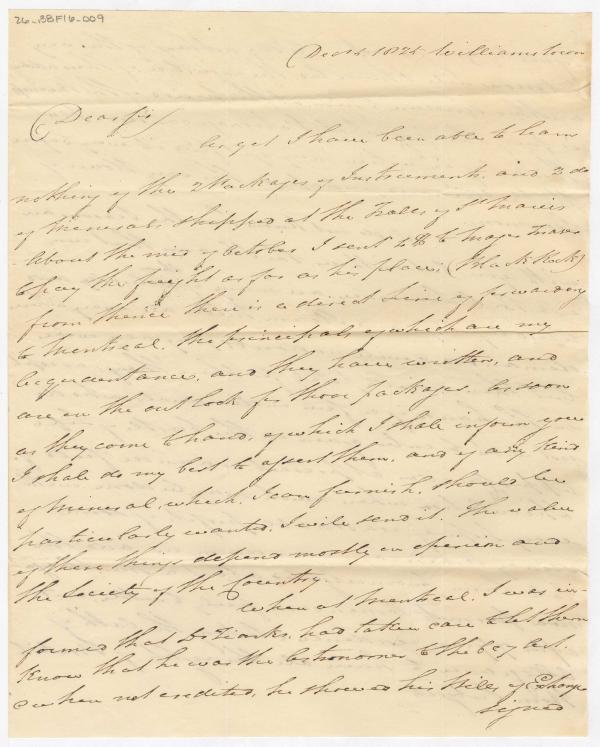 26-BBF16-009
Decr 1825 Williamstown
Dear Sir
As yet I have been able to learn
nothing of the 2 Packages of Instruments, and 3 do
of Minerals shipped at the Falls of St Maries
About the mid of October I sent to Major Fraser
to pay the freight as far as his place, (Black Rock)
from thence there is a direct line of forwarding
to Montreal. the principals of which are my
Acquaintance, and they have written, and
are on the out look for those packages. As soon
as they come to hand, of which I shall inform you
I shall do my best to assort them, and if any kind
of mineral, which I can furnish, should be
particularly wanted, I will send it. The value
of these things depend mostly on opinion and
the Society of the Country.
When at Montreal. I was in-
formed that Dr Tiarks, had taken care to let them
know that he was the Astronomer to the Boy Act.
when not credited, he showed his Bills of Exchange
Signed